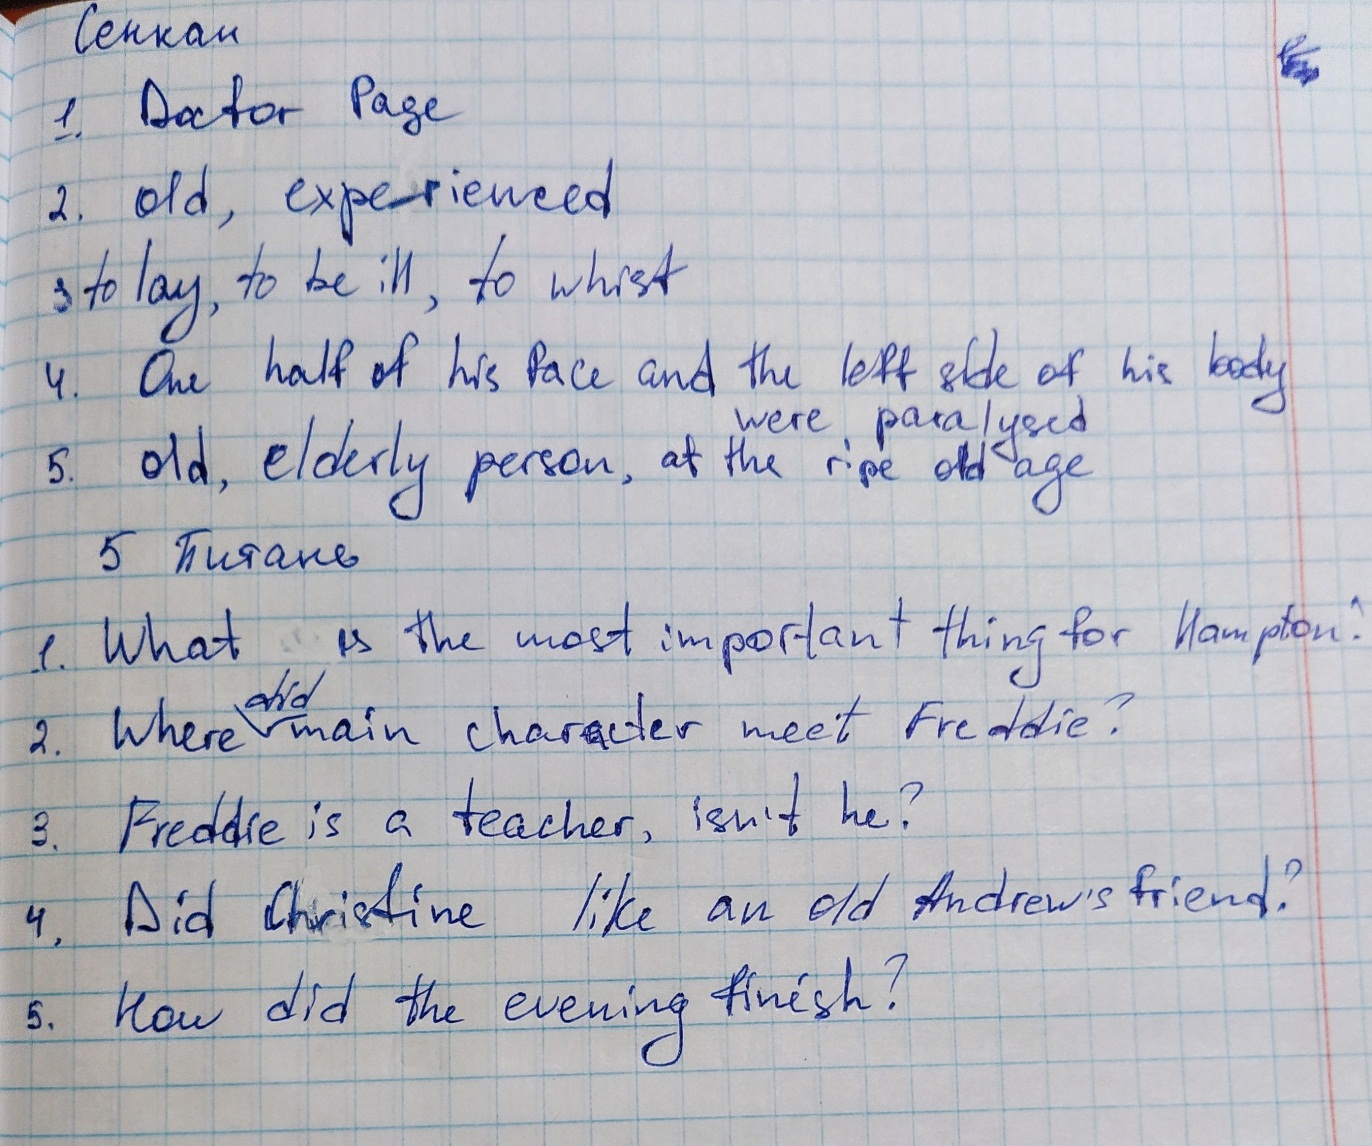 Сенкан
1. Doctor Page
2. old, experienced
3 to lay, to be ill, to whist
4. One half of his face and the left side of his body
were paralysed
5. old, elderly person, at the ripe old age
5 Питань
1. What is the most important thing for Hampton?
2. Where did main character meet Freddie?
3. Freddie is a teacher, isn't he?
4. Did Christine like an old Andrew's friend?
5. How did the evening finish?